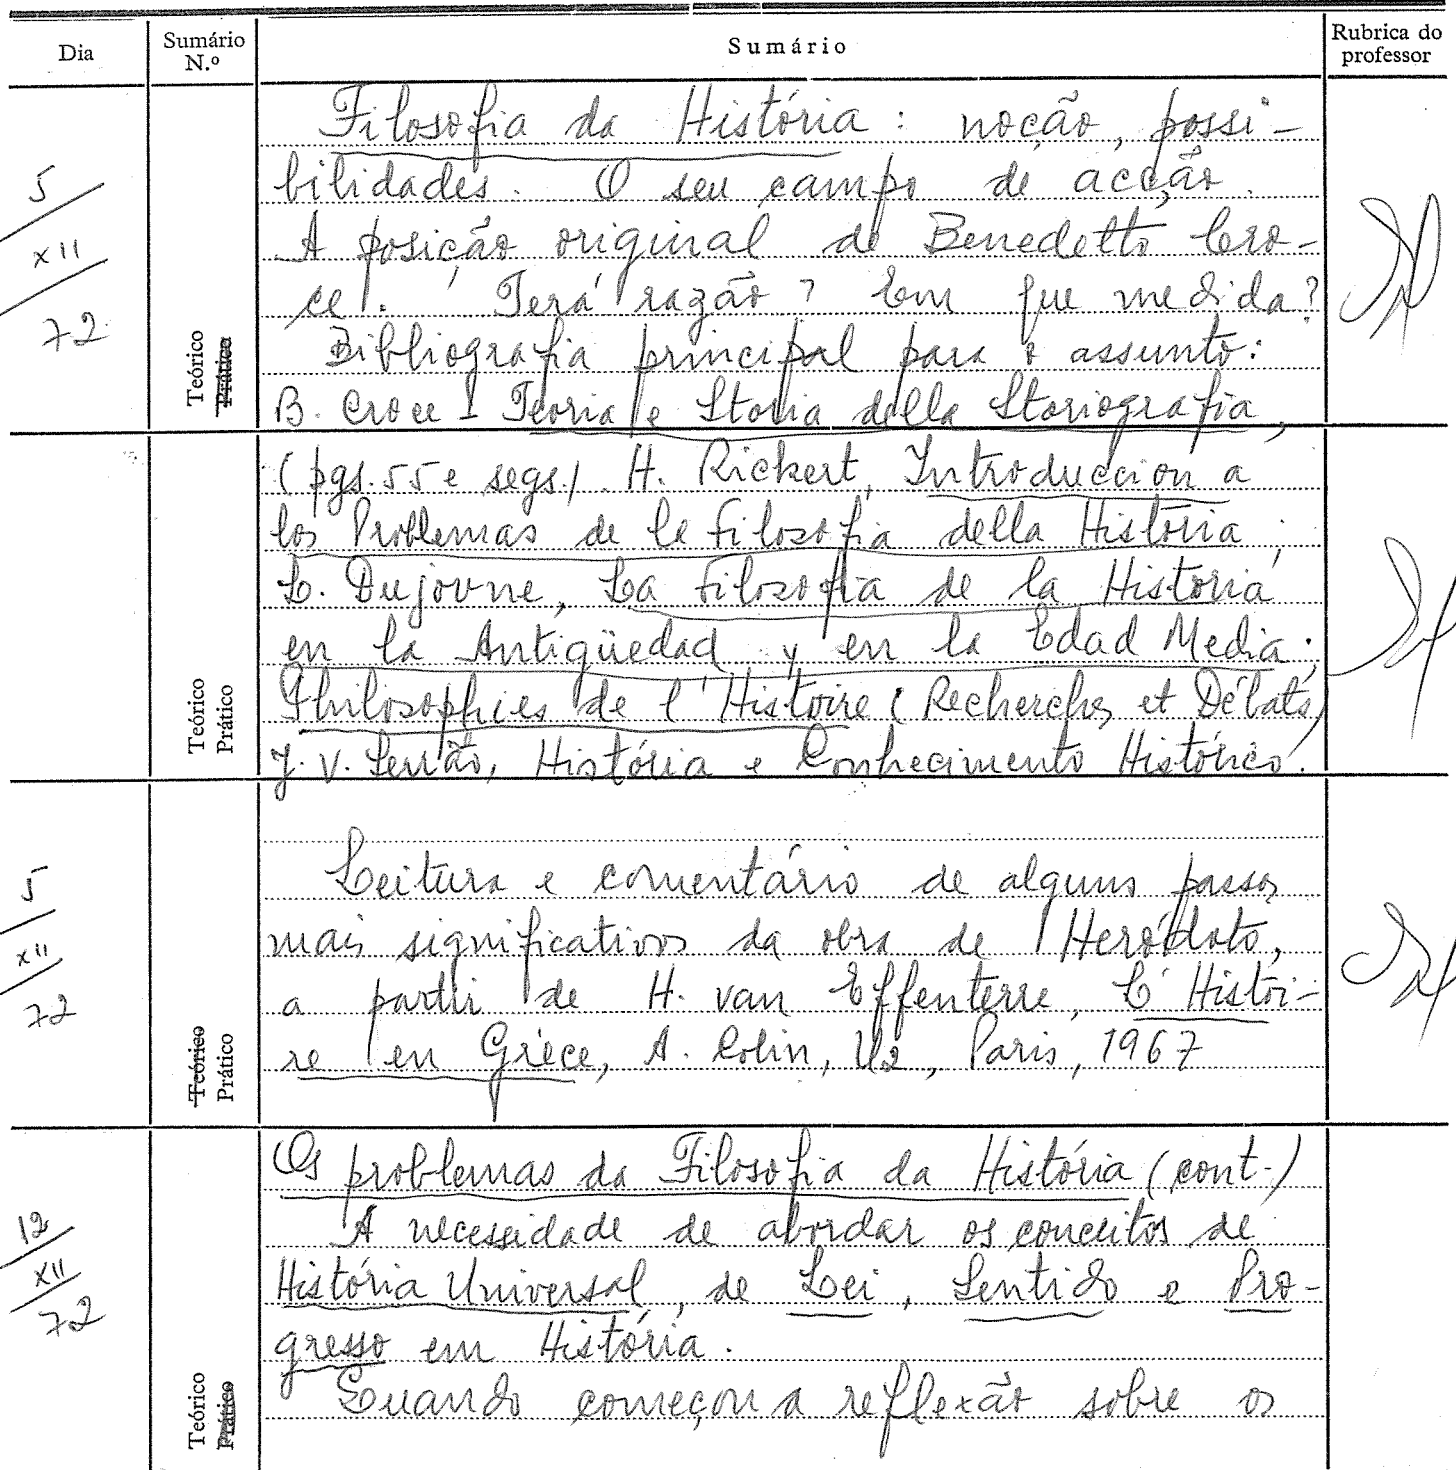 Dia
Sumário N.º
Sumário
Rubrica do professor
5
XII
72
Teórico
Prático
Filosofia da História : noção, possi-
bilidades. O seu campo de acção.
A posição original de Benedetto Cro-
ce. Terá razão? Em que medida?
Bibliografia principal para o assunto:
B. Croce - Teoria e Storia della Storiografia,
Teórico
Prático
(pgs. 55 e segs.) H. Rickert, Introduccion a
los Problemas de la Filosofia della Història;
L. Dujovne, La Filosofia de la Historia
en la Antigüedad y en la Edad Media;
Philosophies de l'Histoire (Recherches et Débats)
J. V. Serrão, História e Conhecimento Histórico.
5
XII
72
Teórico
Prático
Leitura e comentário de alguns passos
mais significativos da obra de Heródoto,
a partir de H. van Effenterre, L'Histoi-
re en Grèce, A. Colin, U2, Paris, 1967
12
XII
72
Teórico
Prático
Os problemas da Filosofia da História (cont.)
A necessidade de abordar os conceitos de
História Universal, de Lei, Sentido e Pro-
gresso em História.
Quando começou a reflexão sobre os